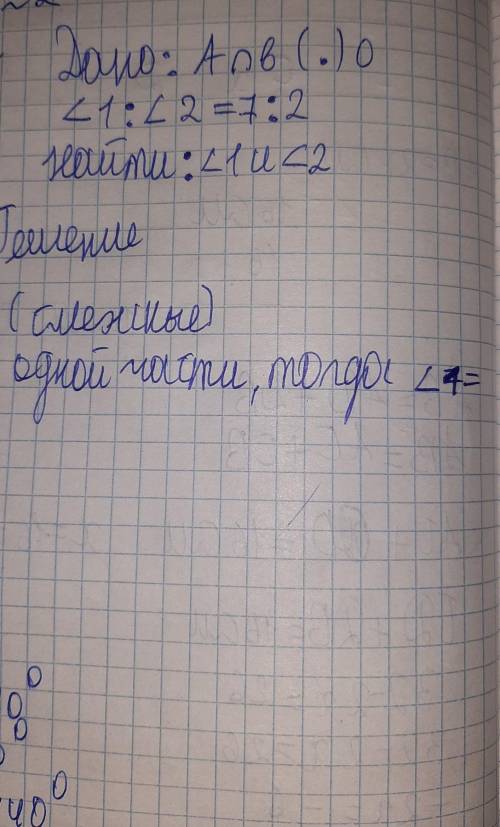 Дано: A∩в (.) O
∠1:∠2=7:2
найти:∠1и∠2
Решение
(смежные)
одной части, тогда ∠1=
0°
40°